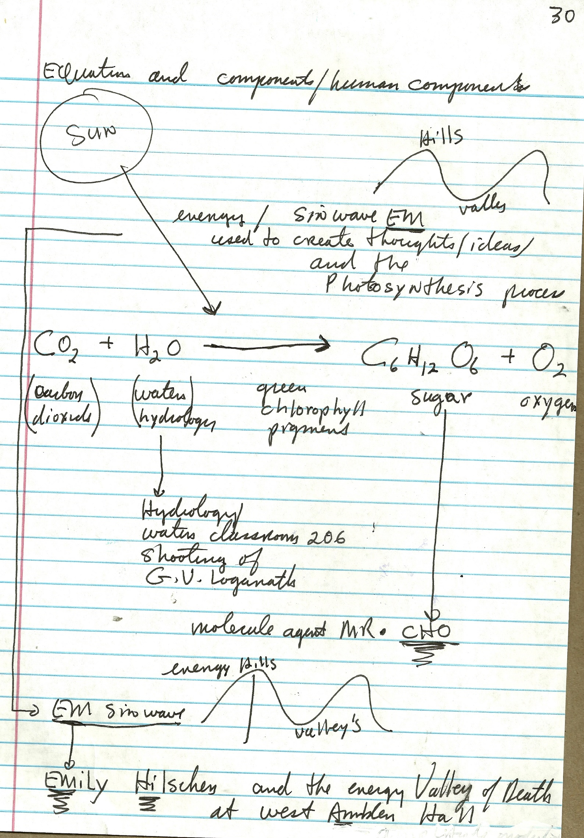 30
Equations and components/human components
Sun
Hills
valley
energy/ Sinwave EM
used to create thoughts/ideas/
and the
Photosynthesis process
CO2 + H2O → C6H12O6 + O2
(carbon dioxide) (water/ hydrology) green chlorophyll pigments sugar oxygen
Hydrology/
waters classroom 206
shooting of
G.V. Loganath
molecule agent MR. CHO
energy Hills
EM Sinwave valley's
EMily Hilscher and the energy Valley of Death
at west Ambler Hall